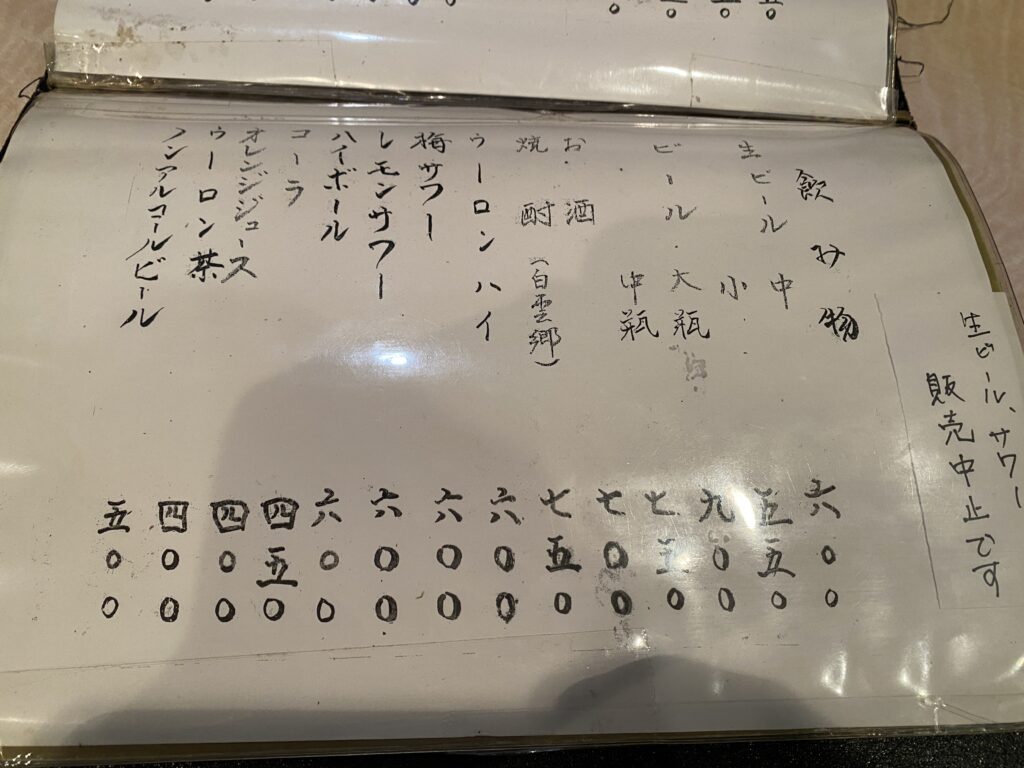 生ビール、サワー
販売中止です
飲み物
生ビール 中 六〇〇
小 五五〇
ビール・大瓶 九〇〇
中瓶 七五〇
お酒 七〇〇
焼酎(白雲郷) 七五〇
ウーロンハイ 六〇〇
梅サワー 六〇〇
レモンサワー 六〇〇
ハイボール 六〇〇
コーラ 四五〇
オレンジジュース 四〇〇
ウーロン茶 四〇〇
ノンアルコールビール 五〇〇